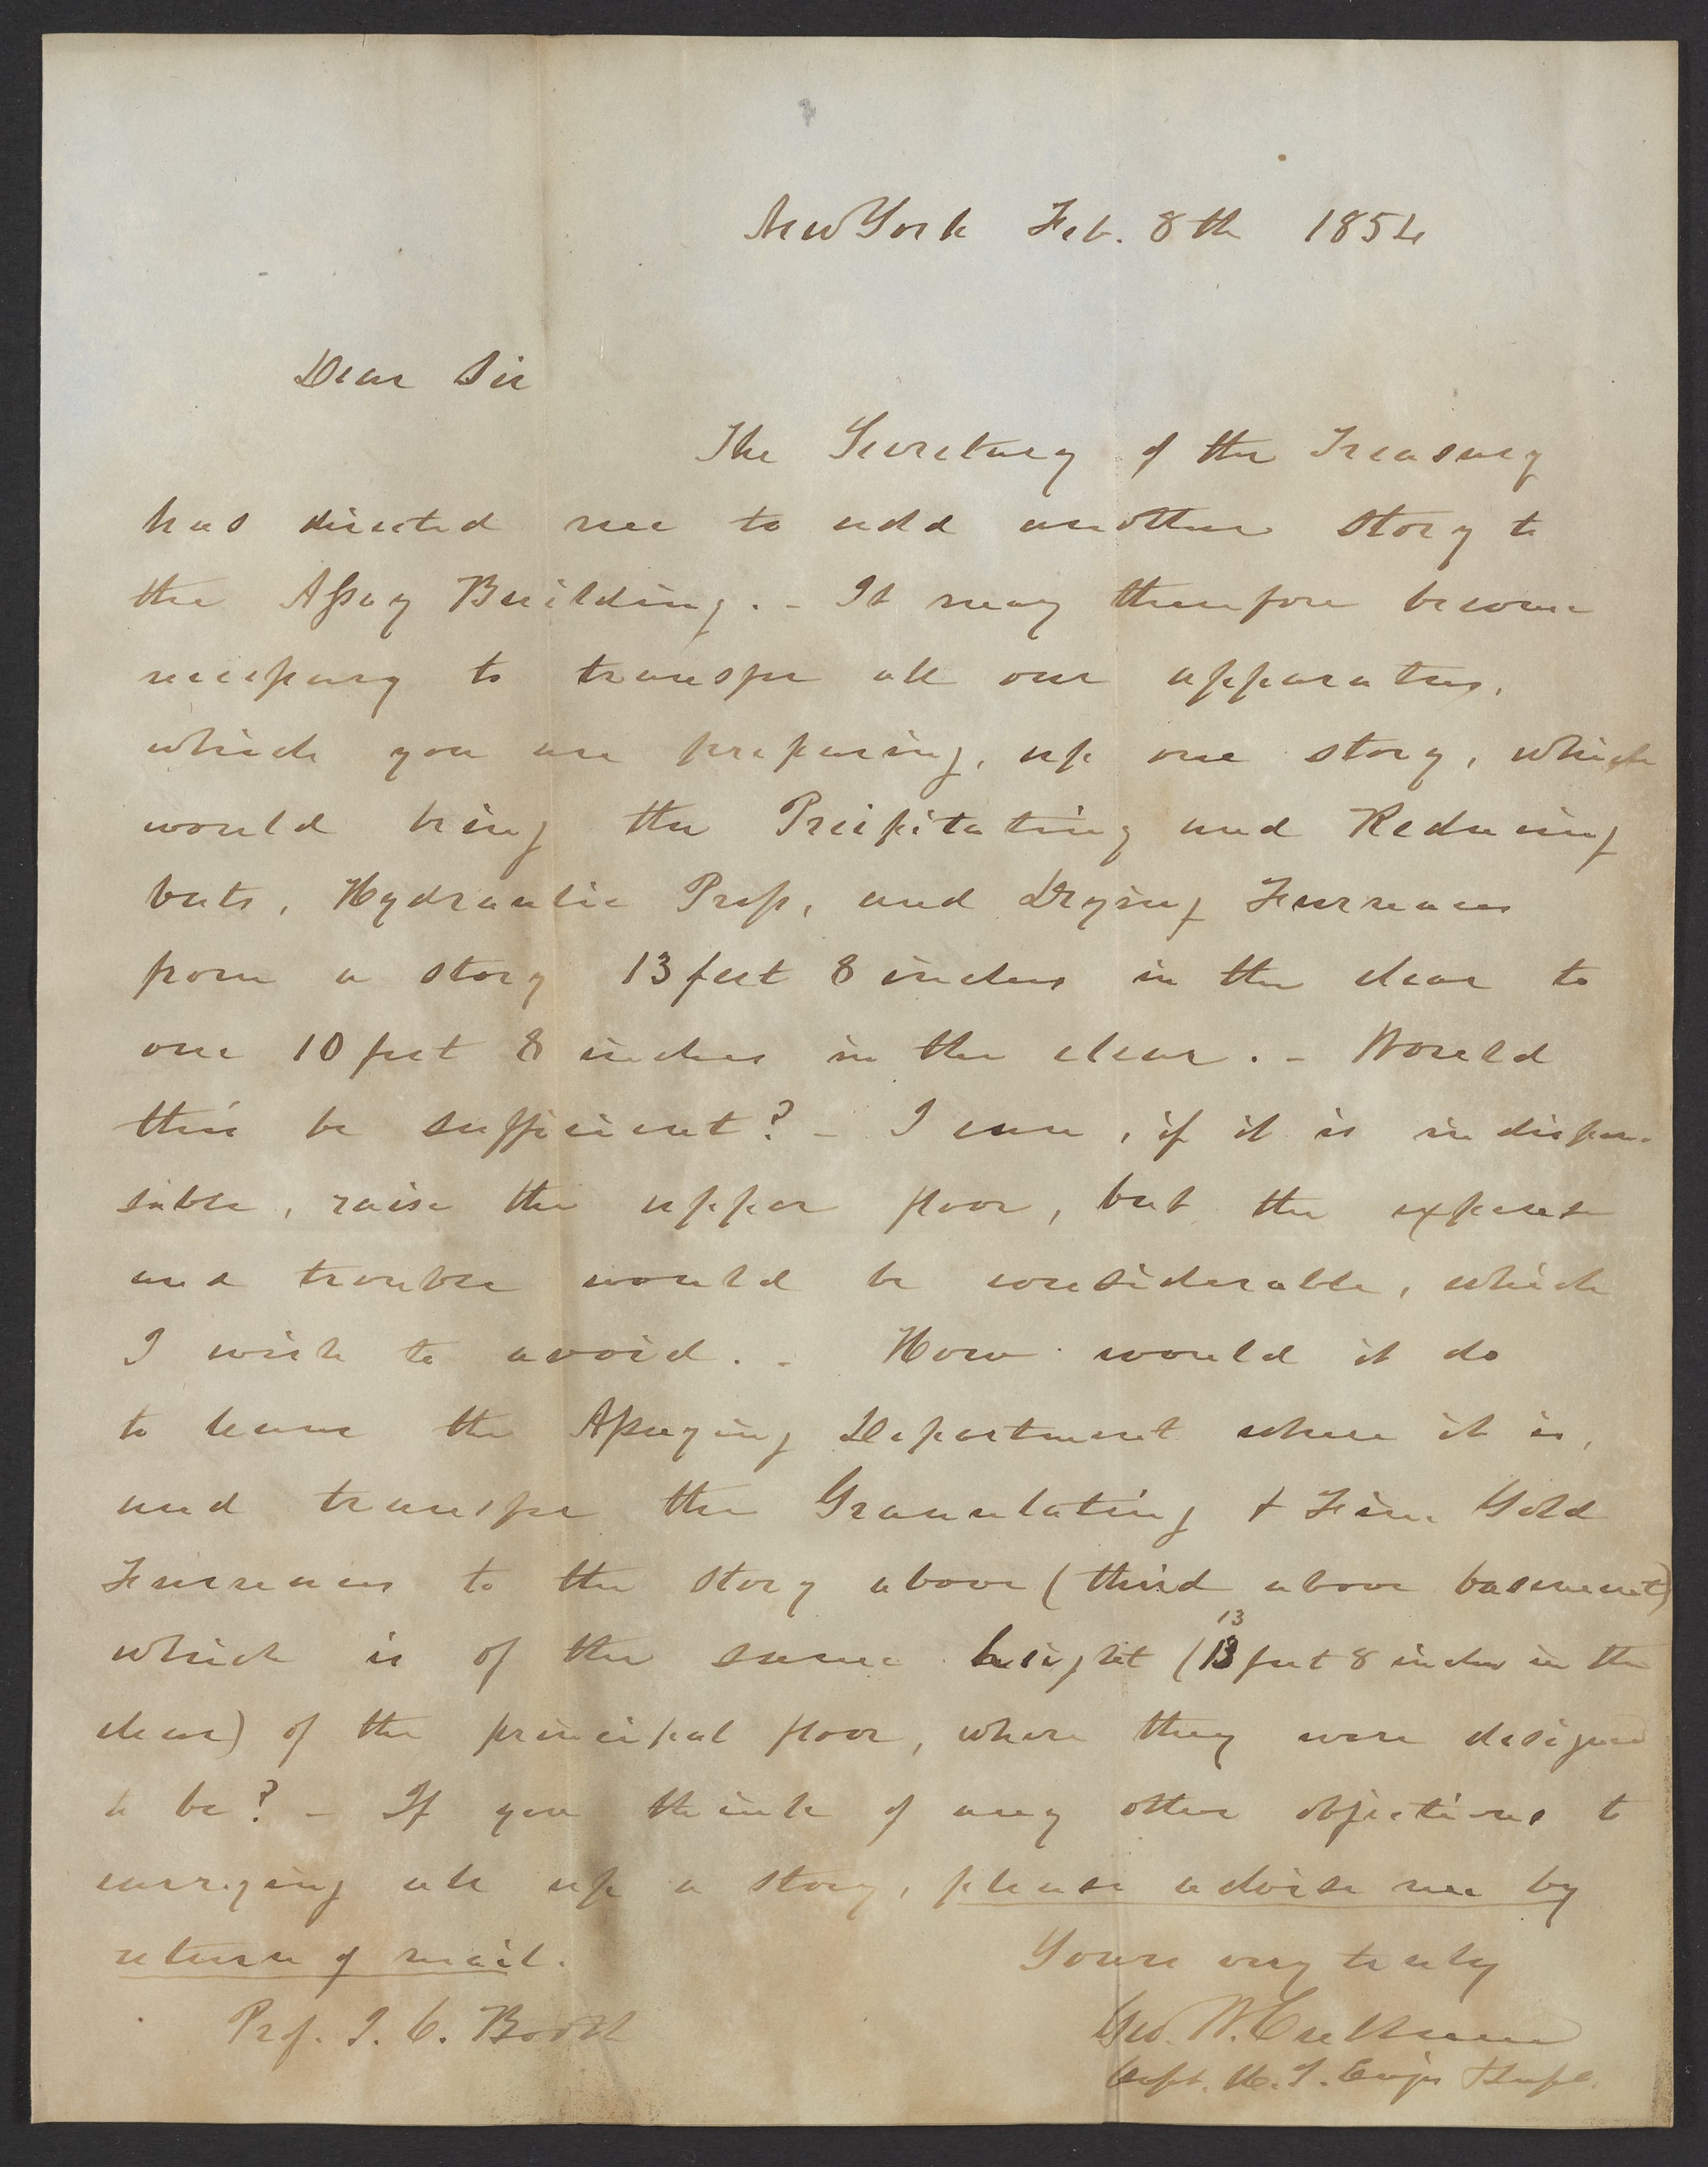 New York Feb. 8th 1854
Dear Sir
The Secretary of the Treasury
has directed me to add another story to
the Assay Building. - It may therefore become
necessary to transfer all our apparatus,
which you are preparing, up one story, which
would bring the Precipitating and Reducing
vats, Hydraulic Press, and Drying Furnaces
from a story 13 feet 8 inches in the clear to
one 10 feet 8 inches in the clear. - Would
this be sufficient? - I can, if it is indispen-
sable, raise the upper floor, but the expense
and trouble would be considerable, which
I wish to avoid. - How would it do
to leave the Assaying Department where it is,
and transfer the Granulating & Fine Gold
Furnaces to the story above (third above basement)
which is of the same height (13 feet 8 inches in the
clear) of the principal floor, where they were designed
to be? - If you think of any other objections to
carrying all up a story, please advise me by
return of mail.
Yours very truly
Prof. J. C. Booth
Geo. W. Cullum
Capt. U. S. Engrs & Supt.